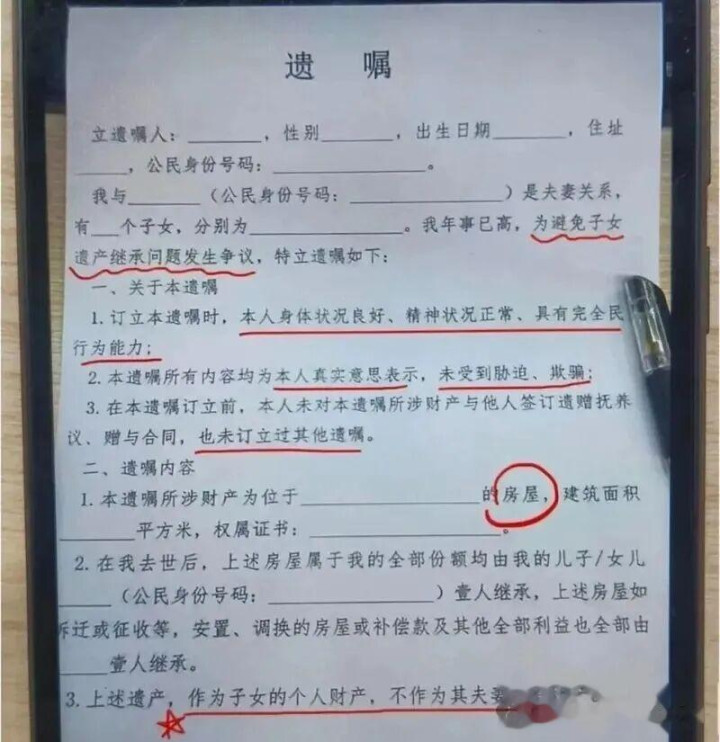 遗 嘱
立遗嘱人：______，性别______，出生日期______，住址
_____，公民身份号码：____________。
我与______（公民身份号码：____________）是夫妻关系，
有__个子女，分别为____________。我年事已高，为避免子女
遗产继承问题发生争议，特立遗嘱如下：
一、关于本遗嘱
1.订立本遗嘱时，本人身体状况良好、精神状况正常、具有完全民
行为能力；
2.本遗嘱所有内容均为本人真实意思表示，未受到胁迫、欺骗；
3.在本遗嘱订立前，本人未对本遗嘱所涉财产与他人签订遗赠抚养
议、赠与合同，也未订立过其他遗嘱。
二、遗嘱内容
1.本遗嘱所涉财产为位于______________的房屋，建筑面积
______平方米，权属证书：____________。
2.在我去世后，上述房屋属于我的全部份额均由我的儿子/女儿
____（公民身份号码：____________）壹人继承，上述房屋如
拆迁或征收等，安置、调换的房屋或补偿款及其他全部利益也全部由
____壹人继承。
3.上述遗产，作为子女的个人财产，不作为其夫妻